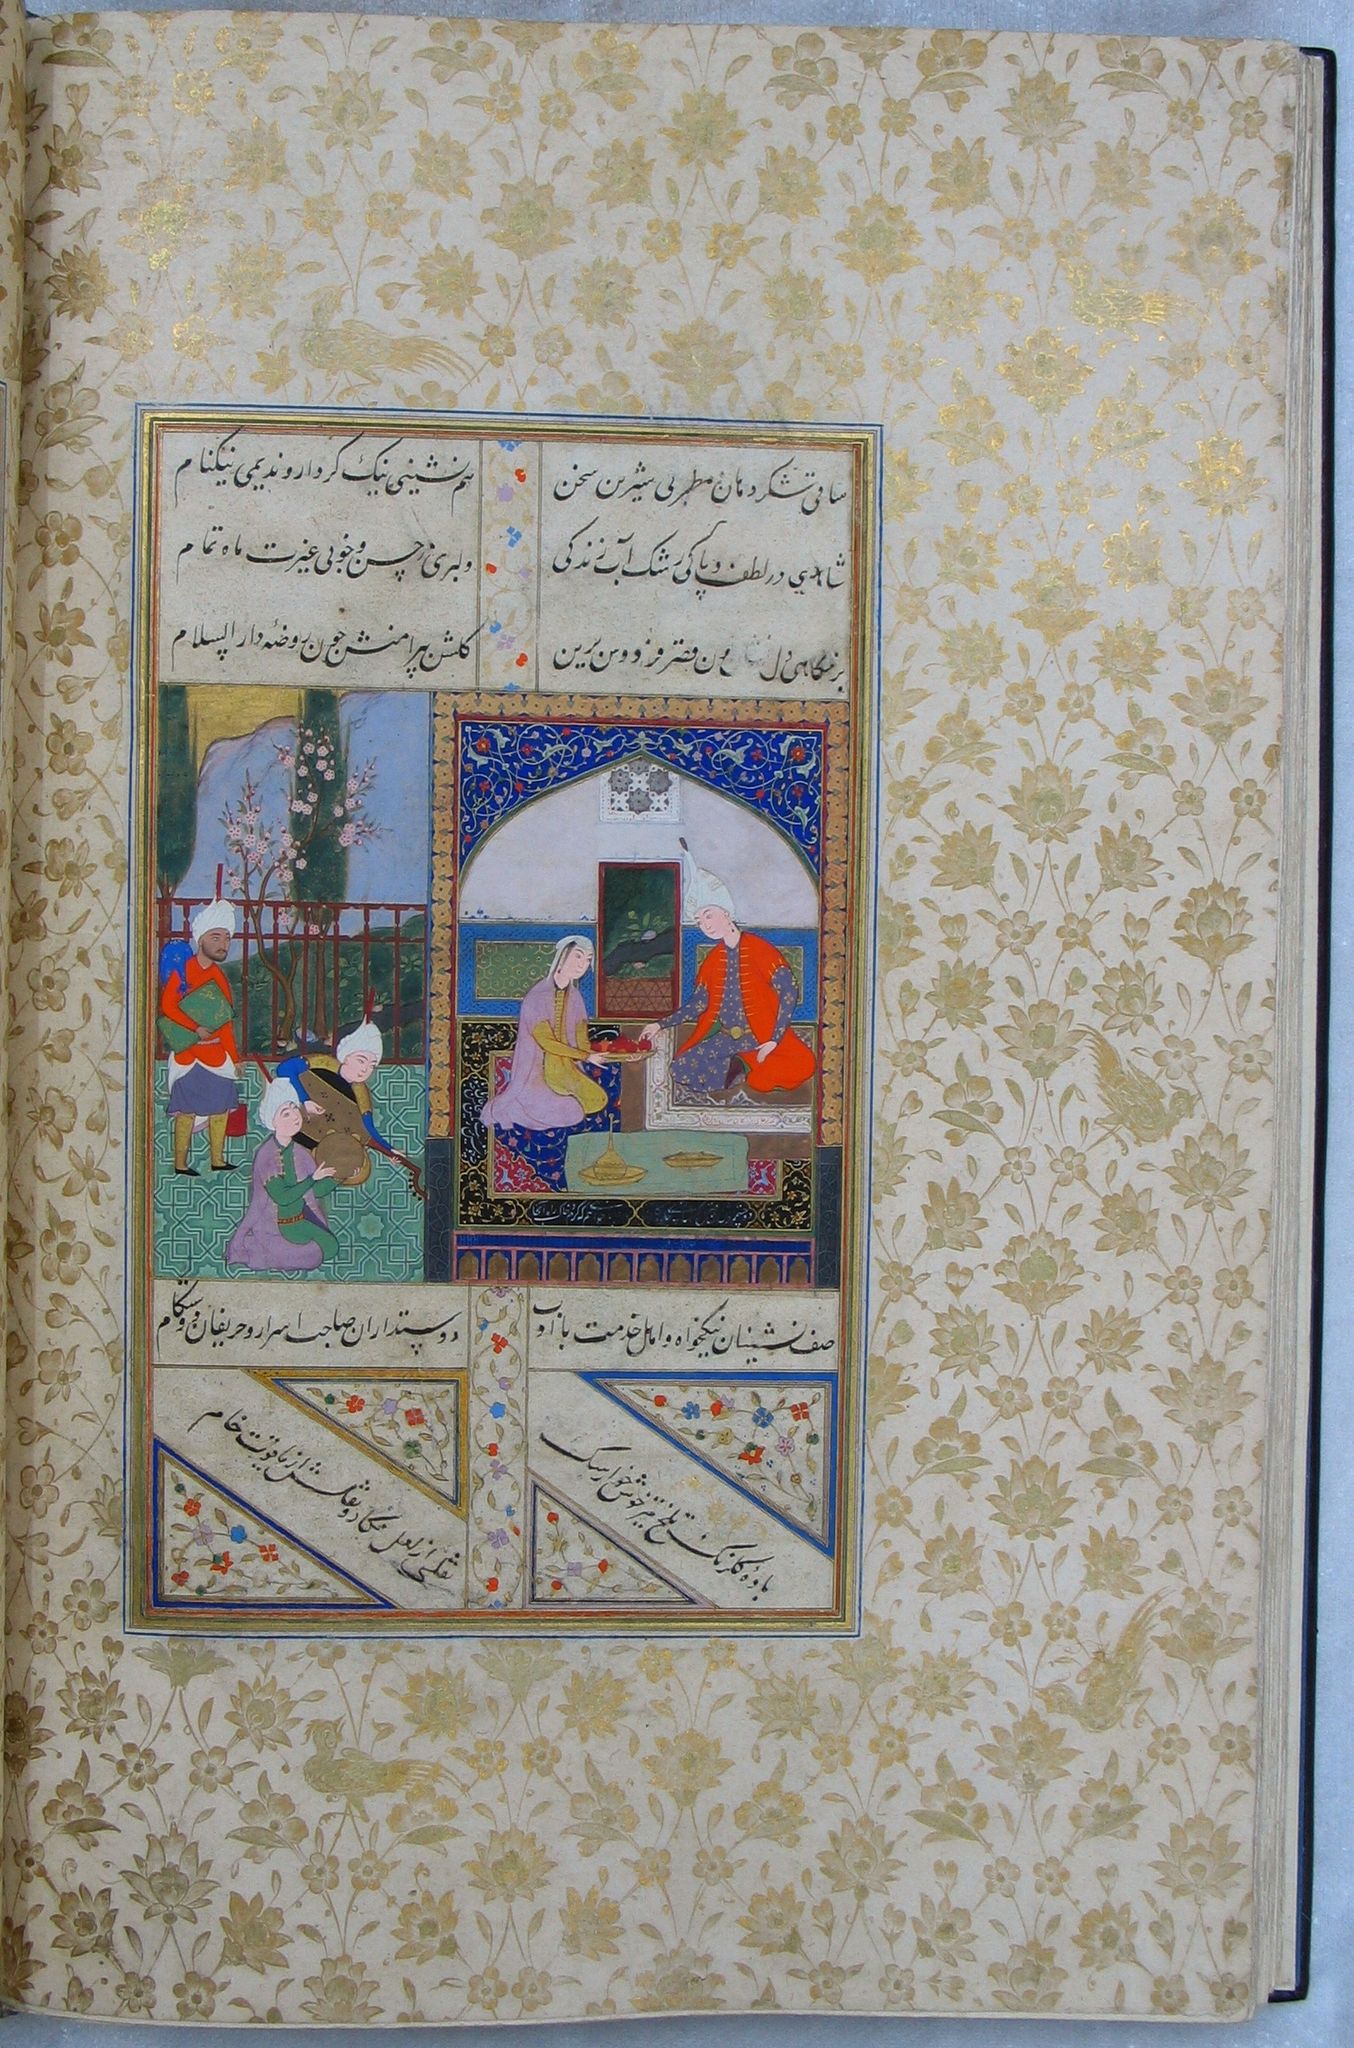 ساقی شکر دهان مطربی شیرین سخن
هم نشینی نیک کردار و ندیمی نیکنام
شاهدی در لطف و پاکی رشک آب زندگی
دلبری در حسن و خوبی غیرت ماه تمام
بزمگاهی دل قصر فردوس برین
گلشن پیرامنش چون روضهٔ دار السلام
صف نشینان نیکخواه و اهل خدمت با ادب
دوستداران صاحب اسرار و حریفان دوستکام
بادهٔ گلرنگ تلخ تیز خوش خوار سبک
نقلی از لعل نگار و نقلش از یاقوت خام